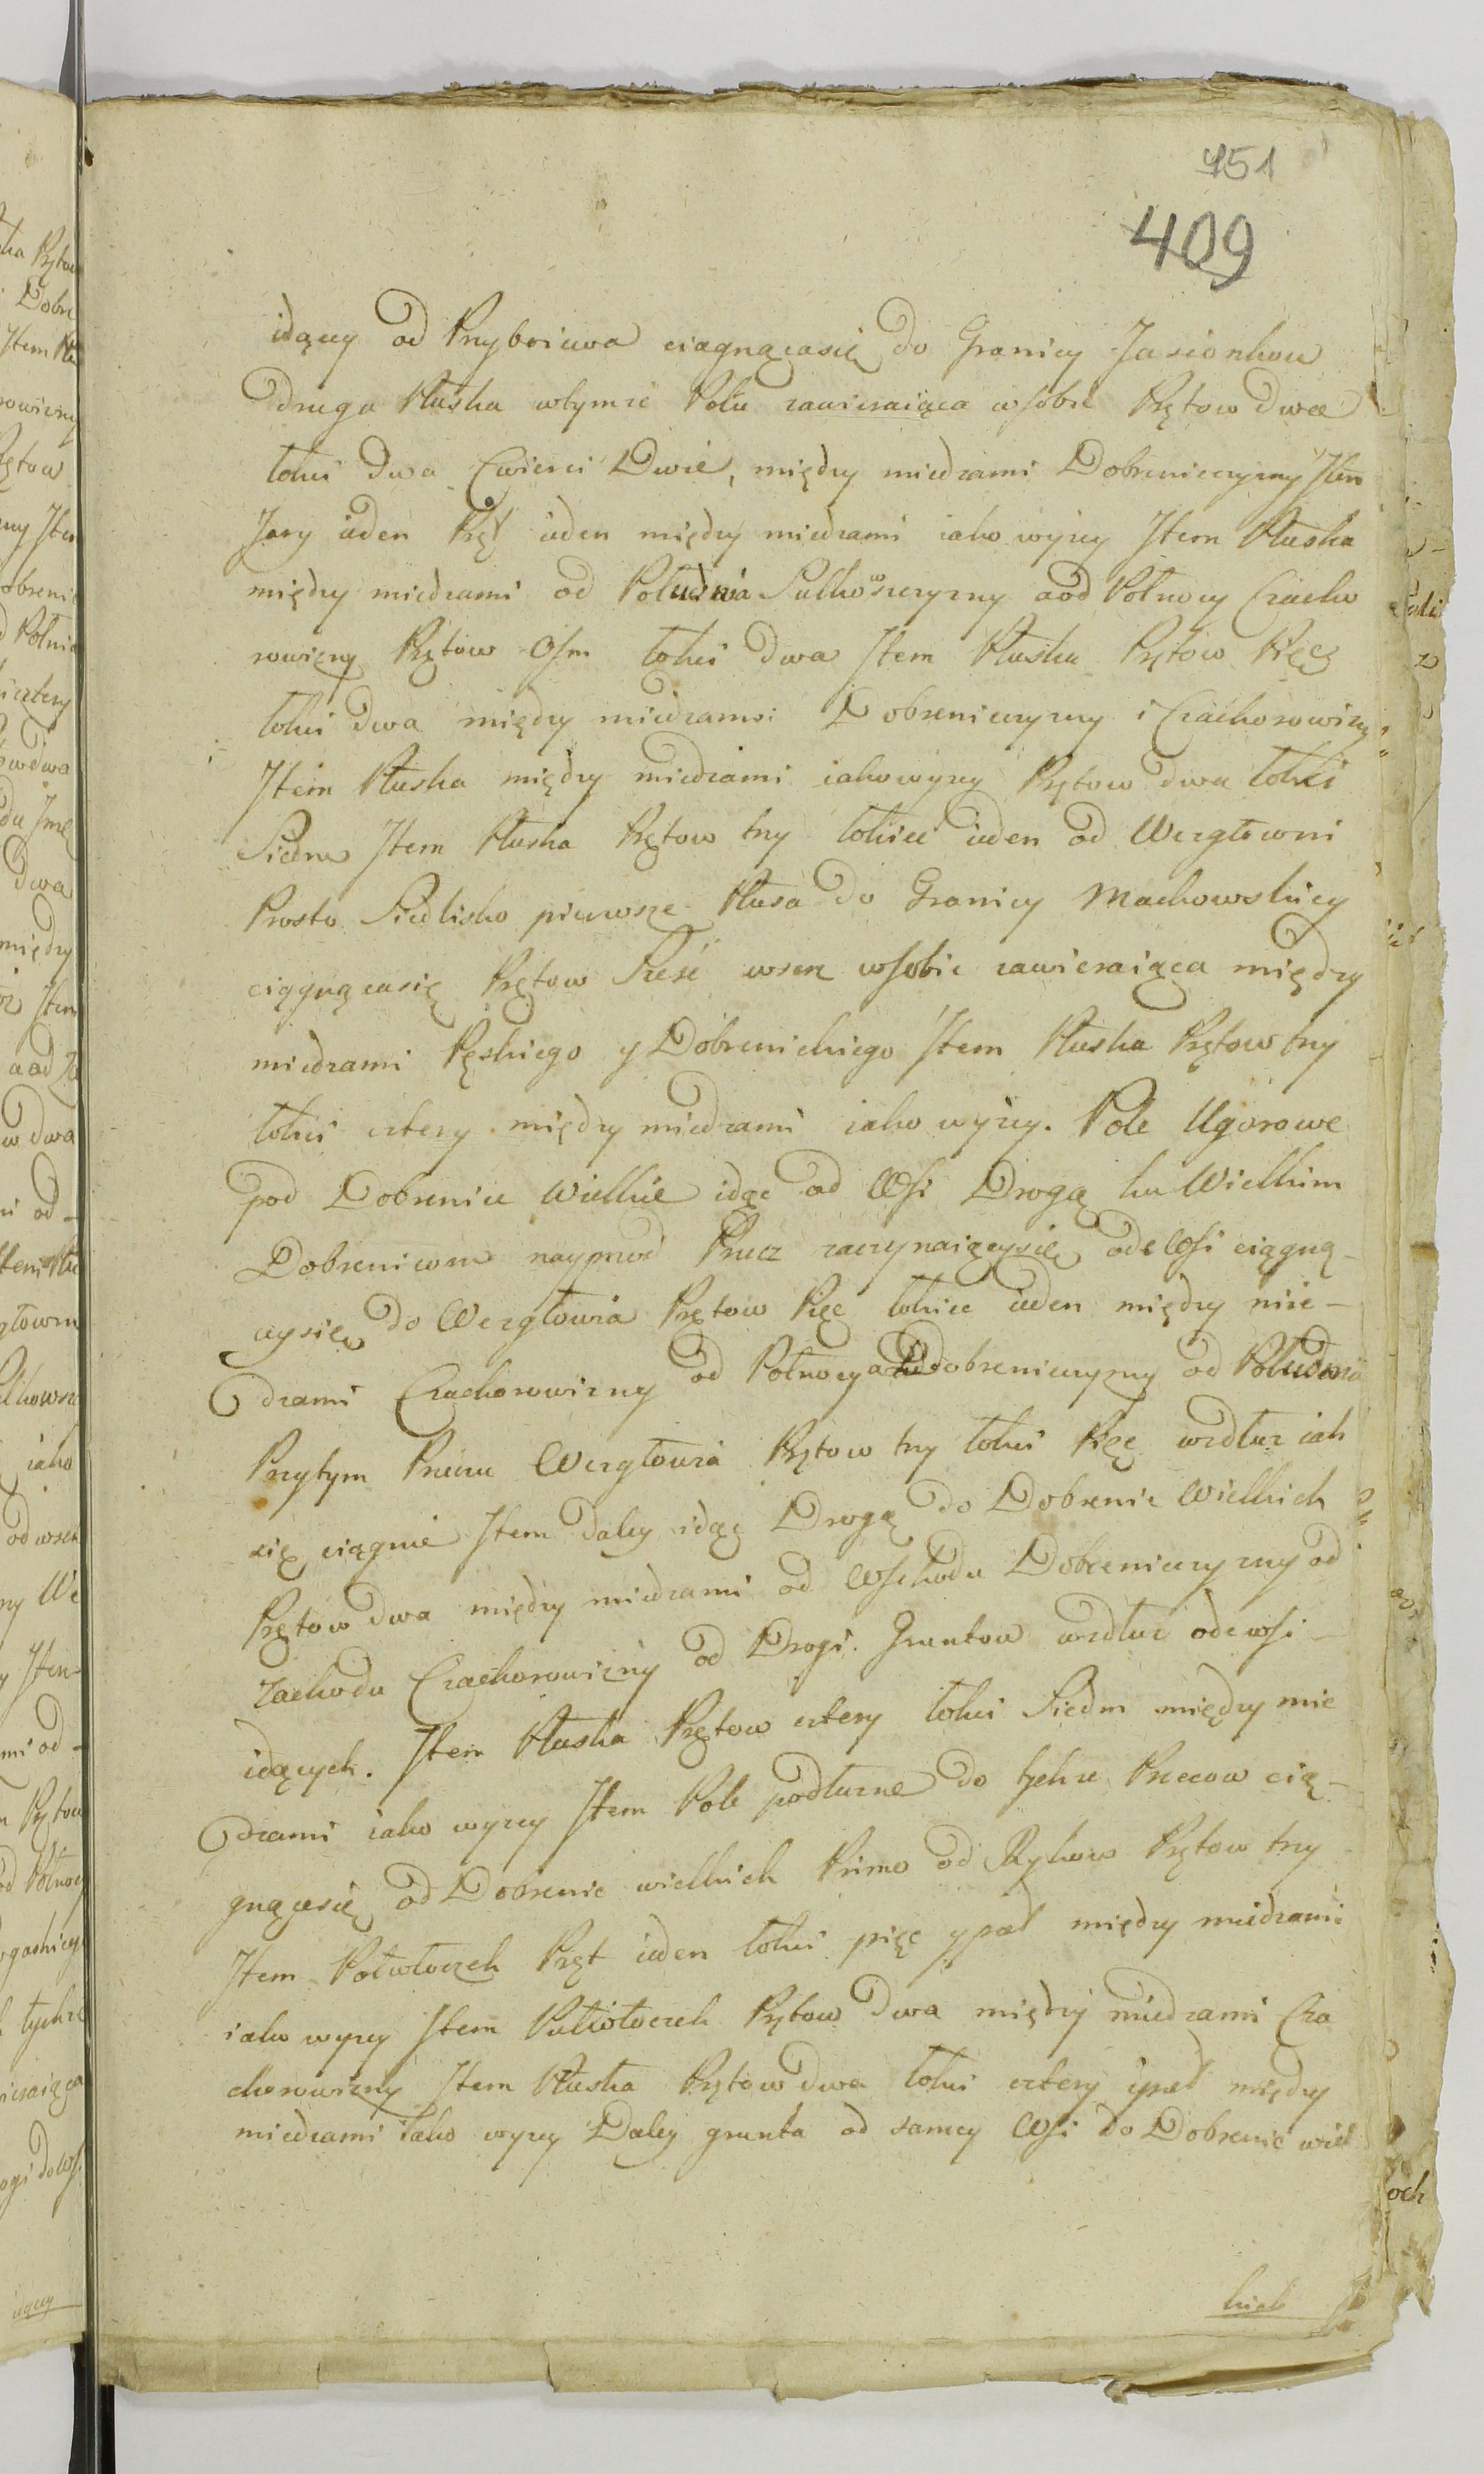 451
409
idący od Przyboiewa ciągnącasię do Granicy Jasionkow
druga Kluska wtymże Polu zawieraiąca wsobie Prętow dwa
łokci dwa Cwierci Dwie, między miedzami Dobreniczyzny Item
Jary ieden Pręt ieden między miedzami iako wyzey Item Kluska
między miedzami od Południa Sulkowszczyzny aod Połnocy Czacho
rowizny Prętow Osm łokci dwa Item Kluska Prętow Pięć
łokci dwa między miedzami Dobreniczyzny i Czachorowizny
Item Kluska między miedzami iakowyzey Prętow dwa łokci
Siedm Item Kluska Prętow trzy łokiec ieden od Wezgłowni
Prosto Siedlisko pierwsze Klusa do Granicy Machowskiey
ciągnącasię Prętow Sześć wszerz wsobie zawieraiąca między
miedzami Pęskiego y Dobrenickiego Item Kluska Prętow trzy
łokci cztery między miedzami iako wyzey. Pole Ugorowe
pod Dobrenice Wielkie idąc od Wsi Drogą ku Wielkim
Dobrenicom nayprzod Przecz zaczynaiącysię odeWsi ciągną-
cysię do Wezgłowia Prętow Pięc łokiec ieden między mie-
dzami Czachorowizny od Połnocy a Dobreniczyzny od Południa
Przytym Przeczu Wezgłowia Prętow trzy łokci Pięc wzdłuz iak
się ciągnie Item daley idąc Drogą do Dobrenic Wielkich
Prętow dwa między miedzami od Wschodu Dobreniczyzny od
Zachodu Czachorowizny od Drogi. Gruntow wzdłuz odewsi
idących. Item Kluska Prętow cztery łokci Siedm między mie
dzami iako wyzey Item Pole podłuzne do tychze Przeczow cią-
gnącesię od Dobrenic wielkich Primo od Rykow Prętow trzy
Item Połwłoczek Pręt ieden łokci pięc ypoł między miedzami
iako wyzey Item Pułwłoczek Prętow dwa między miedzami Cza
chorowizny Item Kluska Prętow dwa łokci cztery ypoł między
miedzami iako wyzey Daley grunta od samey Wsi do Dobrenic wiel
kich